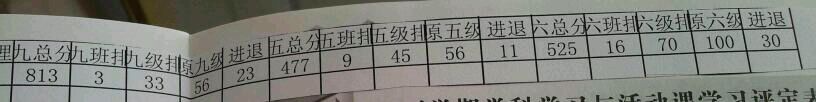 理 九总分 九班排 九级排 原九级 进退 五总分 五班排 五级排 原五级 进退 六总分 六班排 六级排 原六级 进退
813 3 33 56 23 477 9 45 56 11 525 16 70 100 30
学期学科学习与活动课学习评定表